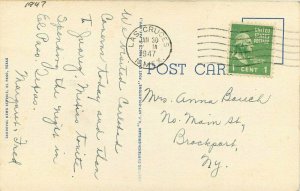 1947
LAS CRUCES
JAN 30
1947
N. MEX.
1 CENT 1
POST CARD
We visited Carlsbad
Caverns today and then
to Juarez, Mexico tonite.
Spending the night in
El Paso, Texas.
Margaret & Fred
Mrs. Anna Bauch
No. Main St,
Brockport,
N.y.